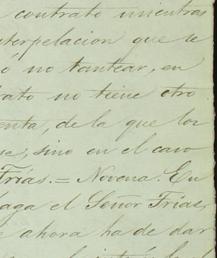 contrato mientras
terpelacion que se
ó no tantear, en
rato no tiene otro
enta, de la que los
se, sino en el caso
Frías. = Novena. En
aga el Señor Frías,
e ahora ha de dar